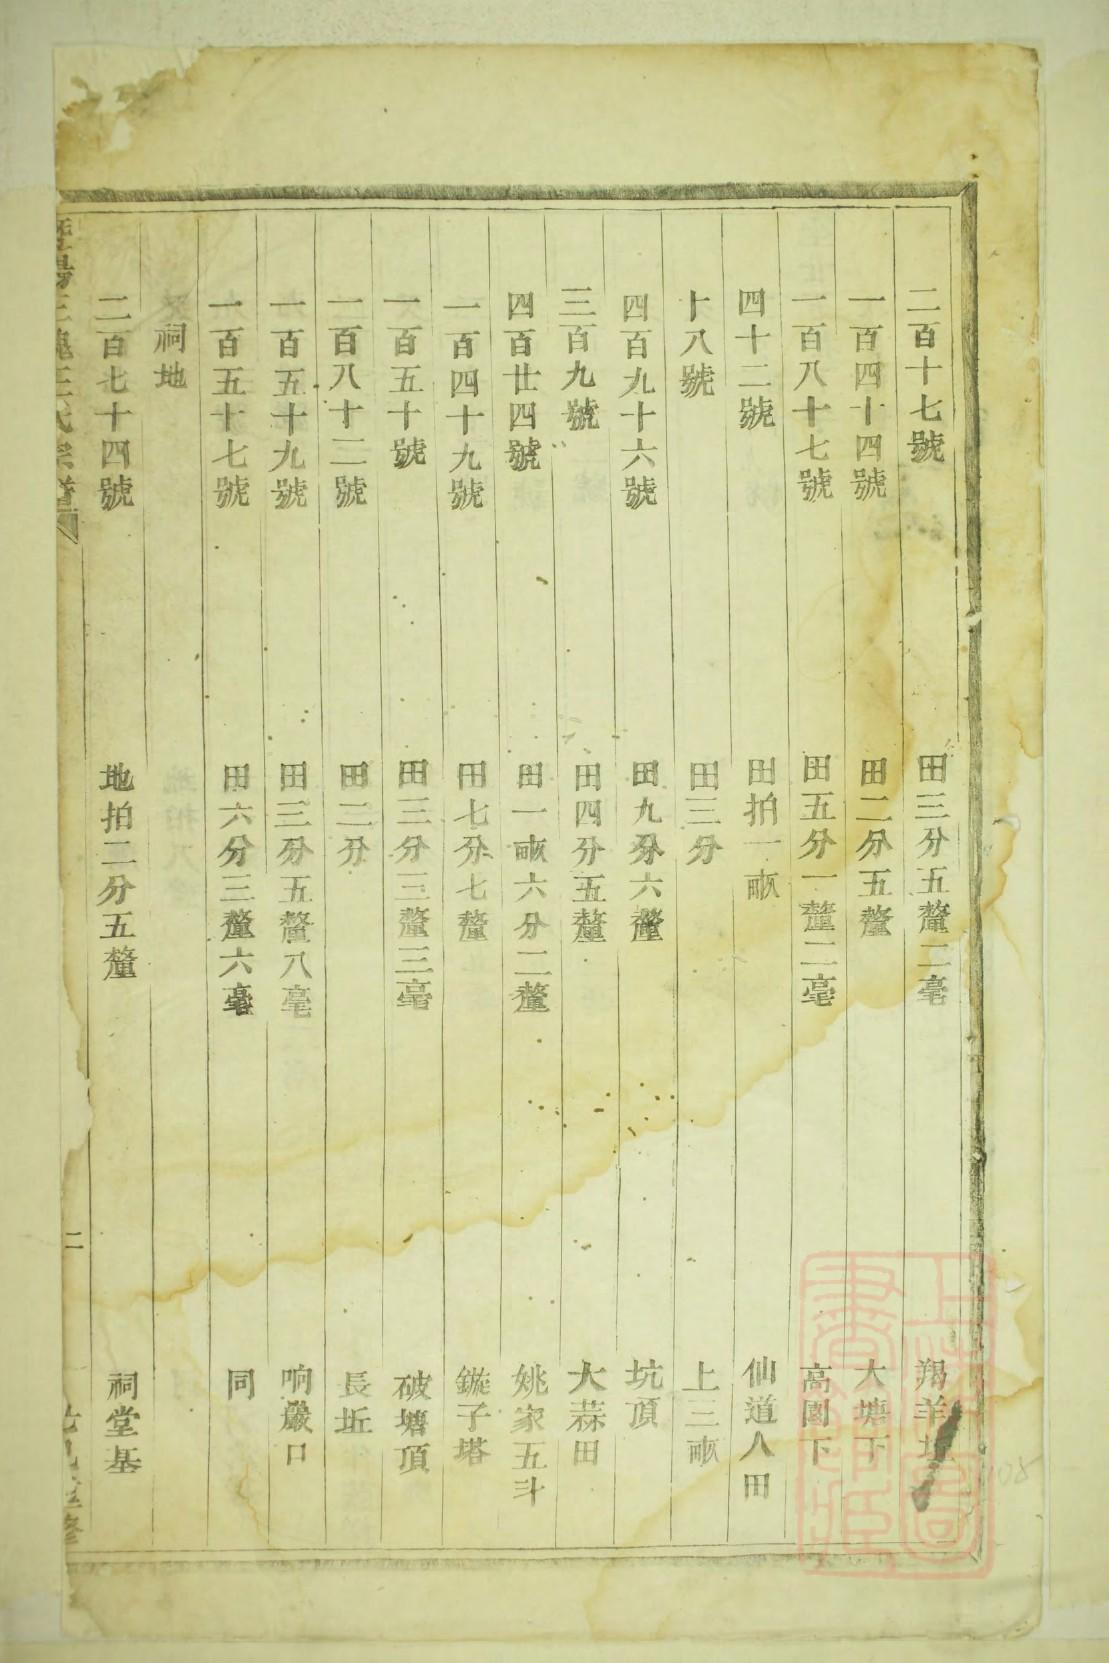 二百十七號 田三分五釐二毫 羯羊
一百四十四號 田二分五釐 大塘下
一百八十七號 田五分一釐二毫 高園下
四十二號 田拍一畝 仙道人田
十八號 田三分 上三畝
四百九十六號 田九分六釐 坑頂
三百九號 田四分五釐 大蒜田
四百廿四號 田一畝六分二釐 姚家五斗
一百四十九號 田七分七釐 鏇子塔
一百五十號 田三分三釐三毫 破塘頂
一百八十二號 田二分 長坵
一百五十九號 田三分五釐八毫 响巖口
一百五十七號 田六分三釐六毫 同
祠地
二百七十四號 地拍二分五釐 祠堂基
暨陽三槐王氏宗譜
二
重修